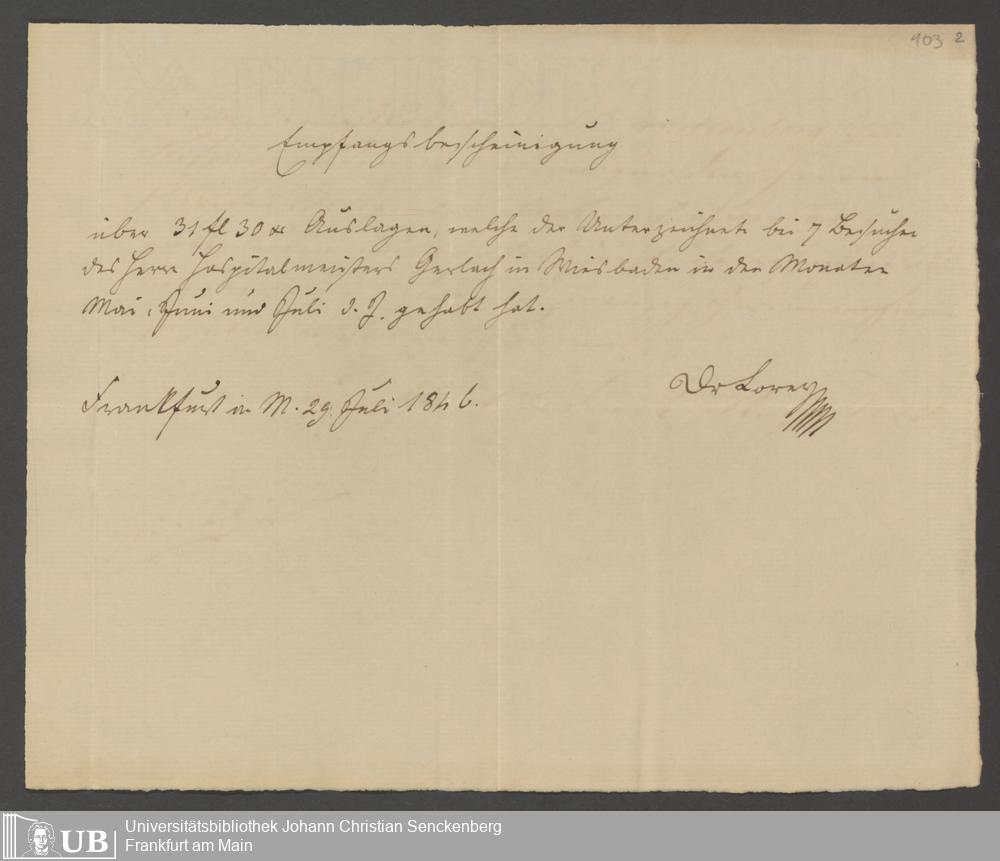 403 2
Empfangsbescheinigung
über 31 fl 30 xr Auslagen, welche der Unterzeichnete bei 7 Besuchen
des Herrn Hospitalmeisters Gerlach in Wiesbaden in den Monaten
Mai, Juni und Juli d. J. gehabt hat.
Dr Lorey
Frankfurt a M. 29. Juli 1846.
UB
Universitätsbibliothek Johann Christian Senckenberg
Frankfurt am Main